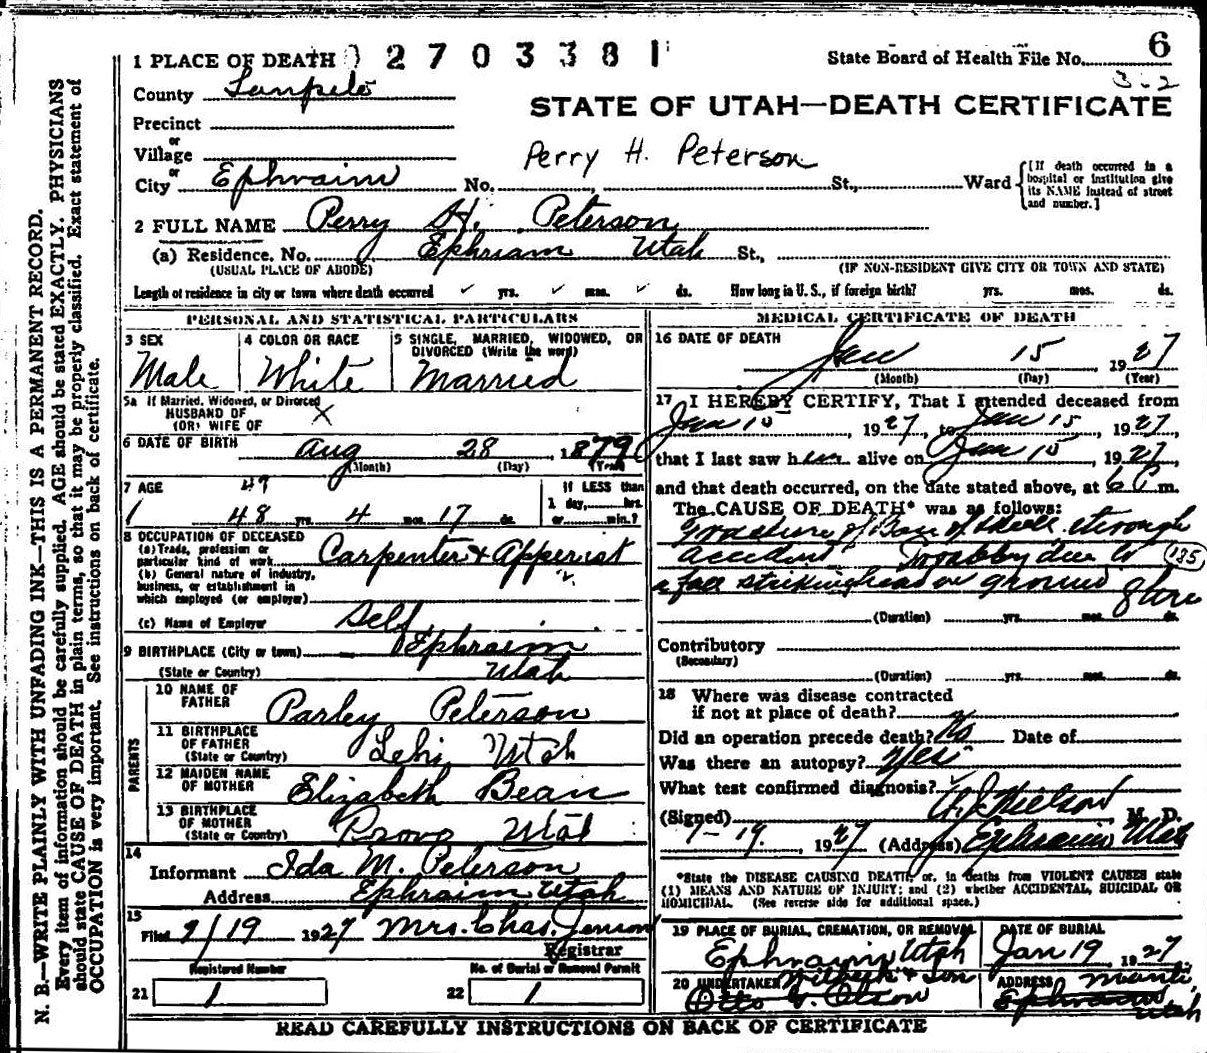 1 PLACE OF DEATH 2703381 State Board of Health File No. 6
3-2
County Sanpete
STATE OF UTAH—DEATH CERTIFICATE
Precinct
or
Village
Perry H. Peterson
or
City Ephraim No. St., Ward
[If death occurred in a hospital or institution give its NAME instead of street and number.]
2 FULL NAME Perry H. Peterson
(a) Residence. No. Ephriam Utah St.,
(USUAL PLACE OF ABODE) (IF NON-RESIDENT GIVE CITY OR TOWN AND STATE)
Length of residence in city or town where death occurred yrs. mos. ds. How long in U. S., if foreign birth? yrs. mos. ds.
PERSONAL AND STATISTICAL PARTICULARS
3 SEX Male
4 COLOR OR RACE White
5 SINGLE, MARRIED, WIDOWED, OR DIVORCED (Write the word) Married
5a If Married, Widowed, or Divorced
HUSBAND OF
(OR) WIFE OF X
6 DATE OF BIRTH Aug 28 1879
(Month) (Day) (Year)
7 AGE 49
48 4 mos. 17 ds.
If LESS than
1 day, hrs.
or min.?
8 OCCUPATION OF DECEASED
(a) Trade, profession or particular kind of work Carpenter & Apperist
(b) General nature of industry, business, or establishment in which employed (or employer)
(c) Name of Employer Self
9 BIRTHPLACE (City or town) Ephraim
(State or Country) Utah
PARENTS
10 NAME OF FATHER Parley Peterson
11 BIRTHPLACE OF FATHER (State or Country) Lehi Utah
12 MAIDEN NAME OF MOTHER Elizabeth Bean
13 BIRTHPLACE OF MOTHER (State or Country) Provo Utah
14
Informant Ida M. Peterson
Address Ephraim Utah
15
Filed 1/19 1927 Mrs. Chas. Jenson
Registrar
Registered Number No. of Burial or Removal Permit
21 1 22 1
MEDICAL CERTIFICATE OF DEATH
16 DATE OF DEATH
Jan 15 1927
(Month) (Day) (Year)
17 I HEREBY CERTIFY, That I attended deceased from
Jan 15, 1927, to Jan 15, 1927,
that I last saw him alive on Jan 15, 1927,
and that death occurred, on the date stated above, at 6 P m.
The CAUSE OF DEATH* was as follows:
Fracture of Base of skull through
accident Probably due to 185
a fall striking head on ground
(Duration) yrs. mos. ds.
Contributory
(Secondary)
(Duration) yrs. mos. ds.
18 Where was disease contracted
if not at place of death?
Did an operation precede death? No Date of
Was there an autopsy? Yes
What test confirmed diagnosis?
(Signed) Nielson M. D.
1-19. 1927 (Address) Ephraim Utah
*State the DISEASE CAUSING DEATH, or, in deaths from VIOLENT CAUSES state
(1) MEANS AND NATURE OF INJURY; and (2) whether ACCIDENTAL, SUICIDAL OR
HOMICIDAL. (See reverse side for additional space.)
19 PLACE OF BURIAL, CREMATION, OR REMOVAL DATE OF BURIAL
Ephraim Utah Jan 19, 1927
20 UNDERTAKER & Son ADDRESS Manti,
Otto V. Olson Ephraim Utah
READ CAREFULLY INSTRUCTIONS ON BACK OF CERTIFICATE
N. B.—WRITE PLAINLY WITH UNFADING INK—THIS IS A PERMANENT RECORD.
Every item of information should be carefully supplied. AGE should be stated EXACTLY. PHYSICIANS
should state CAUSE OF DEATH in plain terms, so that it may be properly classified. Exact statement of
OCCUPATION is very important. See instructions on back of certificate.